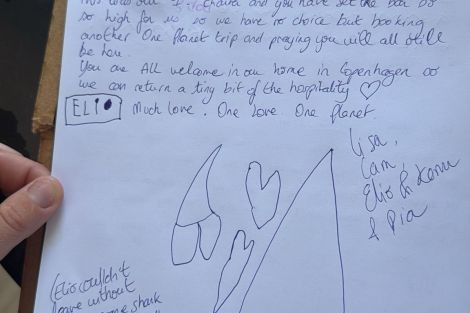 and you have set the bar so
so high for us so we have no choice but booking
another One Planet trip and praying you will all still
be here.
You are ALL welcome in our home in Copenhagen so
we can return a tiny bit of the hospitality ♡
ELIO Much love. One Love. One Planet.
Lisa,
Cam,
Elio &
& Pia
(Elio couldn't
leave without
some shark